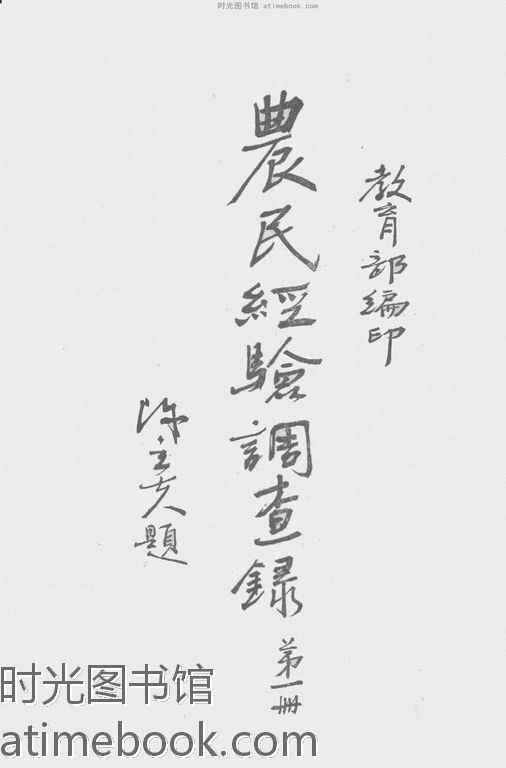 时光图书馆 atimebook.com
教育部編印
農民經驗調查錄 第一冊
陳立夫題
时光图书馆
atimebook.com